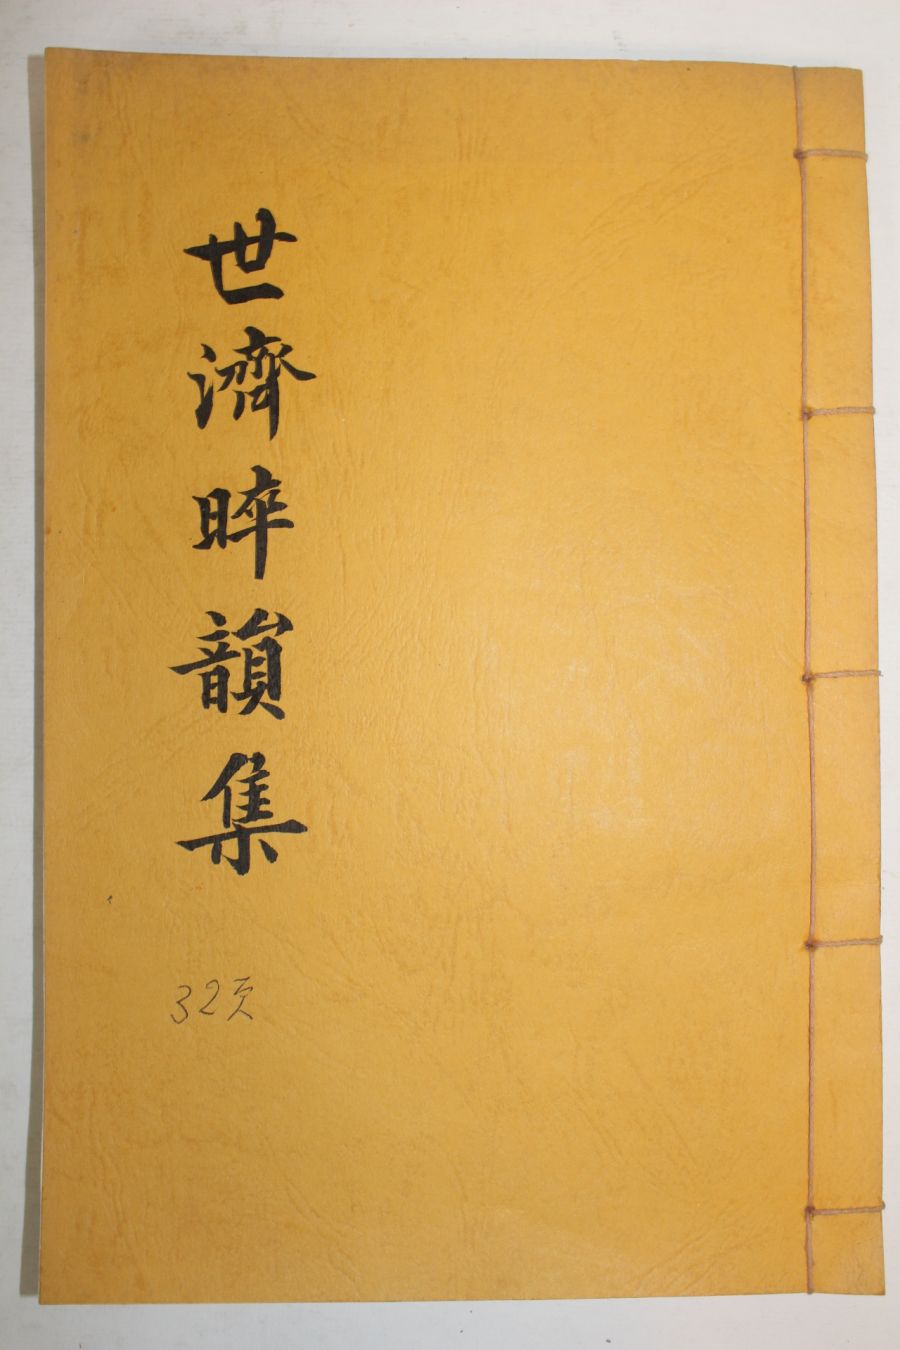 世濟晬韻集
32页